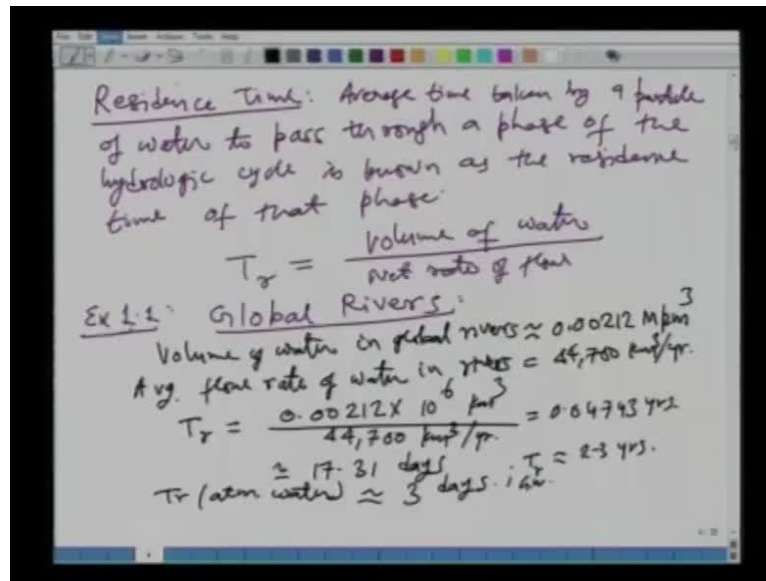 Residence Time: Average time taken by a particle
of water to pass through a phase of the
hydrologic cycle is known as the residence
time of that phase.
Tr = volume of water / net rate of flow
Ex 1.1: Global Rivers:
Volume of water in global rivers ≈ 0.00212 M km³
Avg. flow rate of water in rivers = 44,700 km³/yr.
Tr = 0.00212 X 10⁶ km³ / 44,700 km³/yr. = 0.04743 yrs
≈ 17.31 days
Tr (atm water) ≈ 3 days. Tr ≈ 2-3 yrs.